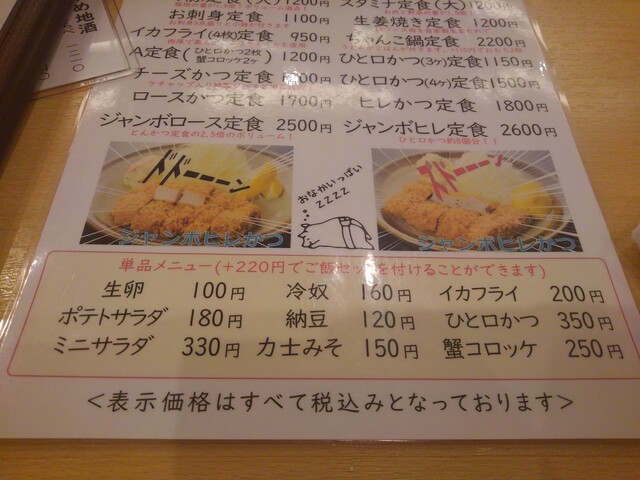 め地酒
定食(大)1200円
スタミナ定食(大)1200円
お刺身定食 1100円
生姜焼き定食 1200円
イカフライ(4枚)定食 950円
ちゃんこ鍋定食 2200円
A定食(ひと口かつ2枚 蟹コロッケ2ヶ) 1200円
ひと口かつ(3ヶ)定食1150円
チーズかつ定食
ひと口かつ(4ヶ)定食1500円
ロースかつ定食 1700円
ヒレかつ定食 1800円
ジャンボロース定食 2500円
とんかつ定食の2.5倍のボリューム!
ジャンボヒレ定食 2600円
ひと口かつ約8個分!!
ズドーーーン
ジャンボヒレかつ
おなかいっぱい
ZZZZ
ズドーーーン
ジャンボヒレかつ
単品メニュー(+220円でご飯セットを付けることができます)
生卵 100円 冷奴 160円 イカフライ 200円
ポテトサラダ 180円 納豆 120円 ひと口かつ 350円
ミニサラダ 330円 力士みそ 150円 蟹コロッケ 250円
<表示価格はすべて税込みとなっております>